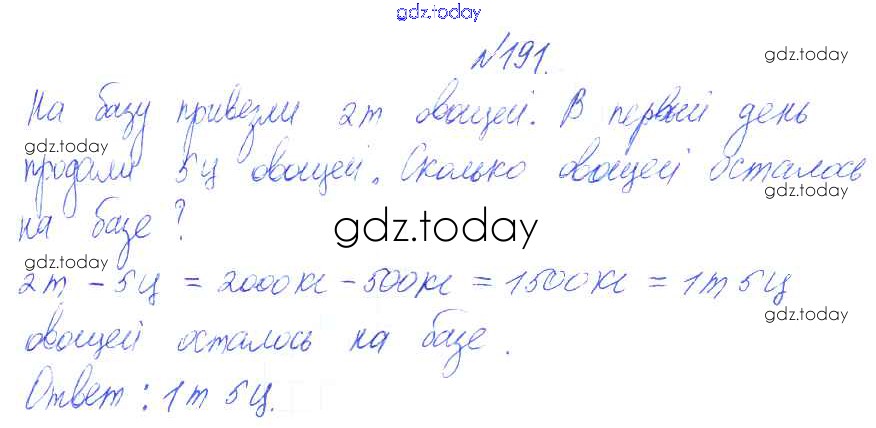 gdz.today
№191.
gdz.today
На базу привезли 2т овощей. В первый день
gdz.today
продали 5ц овощей. Сколько овощей осталось
gdz.today
на базе?
gdz.today
gdz.today
2т - 5ц = 2000кг - 500кг = 1500кг = 1т 5ц
gdz.today
овощей осталось на базе.
Ответ: 1т 5ц.